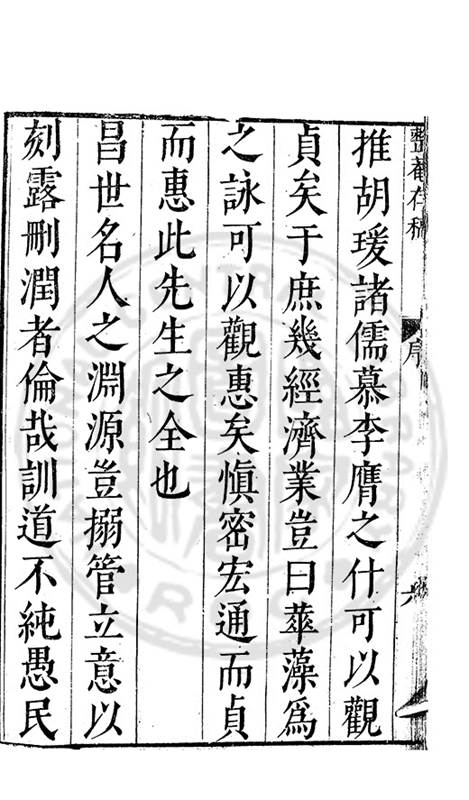 整菴存稿
序
六
推胡瑗諸儒慕李膺之什可以觀
貞矣于庶幾經濟業豈曰華藻爲
之詠可以觀惠矣愼密宏通而貞
而惠此先生之全也
昌世名人之淵源豈搦管立意以
刻露刪潤者倫哉訓道不純愚民